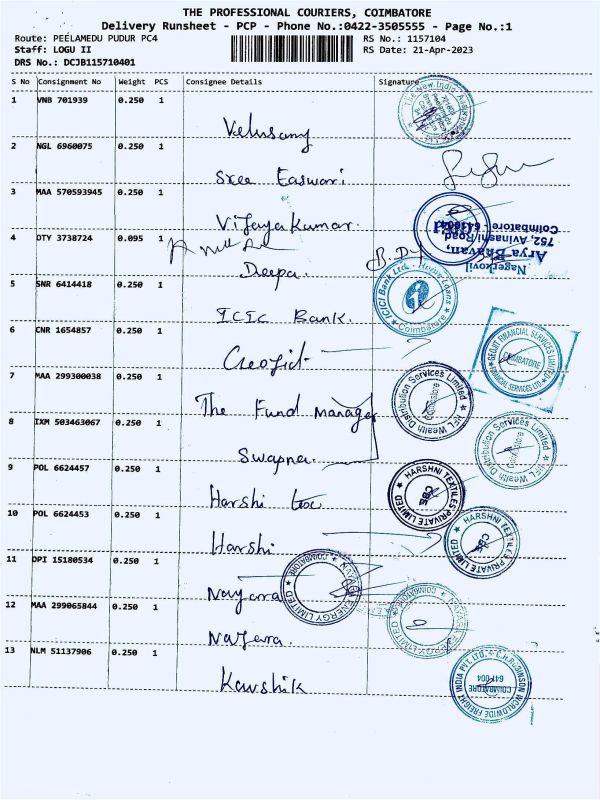 THE PROFESSIONAL COURIERS, COIMBATORE
Delivery Runsheet - PCP - Phone No.:0422-3505555 - Page No.:1
Route: PEELAMEDU PUDUR PC4 RS No.: 1157104
Staff: LOGU II RS Date: 21-Apr-2023
DRS No.: DCJB115710401
S No Consignment No Weight PCS Consignee Details Signature
1 VNB 701939 0.250 1
Velusamy
2 NGL 6960075 0.250 1
Sree Easwari
3 MAA 570593945 0.250 1
Vijayakumar.
Nagerkovil
Arya Bhavan,
752, Avinashi Road
Coimbatore - 641004
4 DTY 3738724 0.095 1
Deepa.
5 SNR 6414418 0.250 1
ICIC Bank.
ICICI Bank Ltd. - Home Loans
Coimbatore
6 CNR 1654857 0.250 1
Geojit
GEOJIT FINANCIAL SERVICES LIMITED
COIMBATORE
7 MAA 299300038 0.250 1
The Fund manager
IIFL Wealth Distribution Services Limited
Coimbatore
8 IXM 503463067 0.250 1
Swapna.
IIFL Wealth Distribution Services Limited
Coimbatore
9 POL 6624457 0.250 1
Harshi tex
HARSHNI TEXTILES PRIVATE LIMITED
CBE
10 POL 6624453 0.250 1
Harshi
HARSHNI TEXTILES PRIVATE LIMITED
CBE
11 DPI 15180534 0.250 1
Nayara
NAYARA ENERGY LIMITED
COIMBATORE
12 MAA 299065844 0.250 1
Nayara.
NAYARA ENERGY LIMITED
COIMBATORE
13 NLM 51137906 0.250 1
Kaushik
C.H. ROBINSON WORLDWIDE FREIGHT INDIA PVT. LTD.
COIMBATORE
641 004